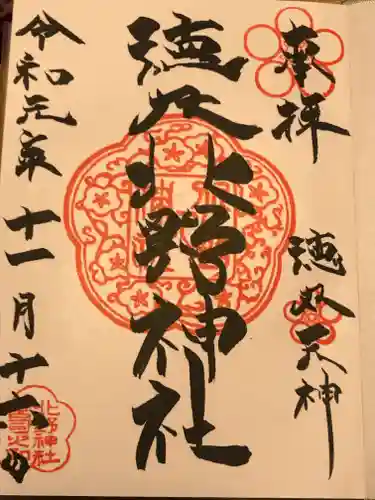 奉拝
徳丸天神
徳丸北野神社
令和元年
十一月十六日
北野神社